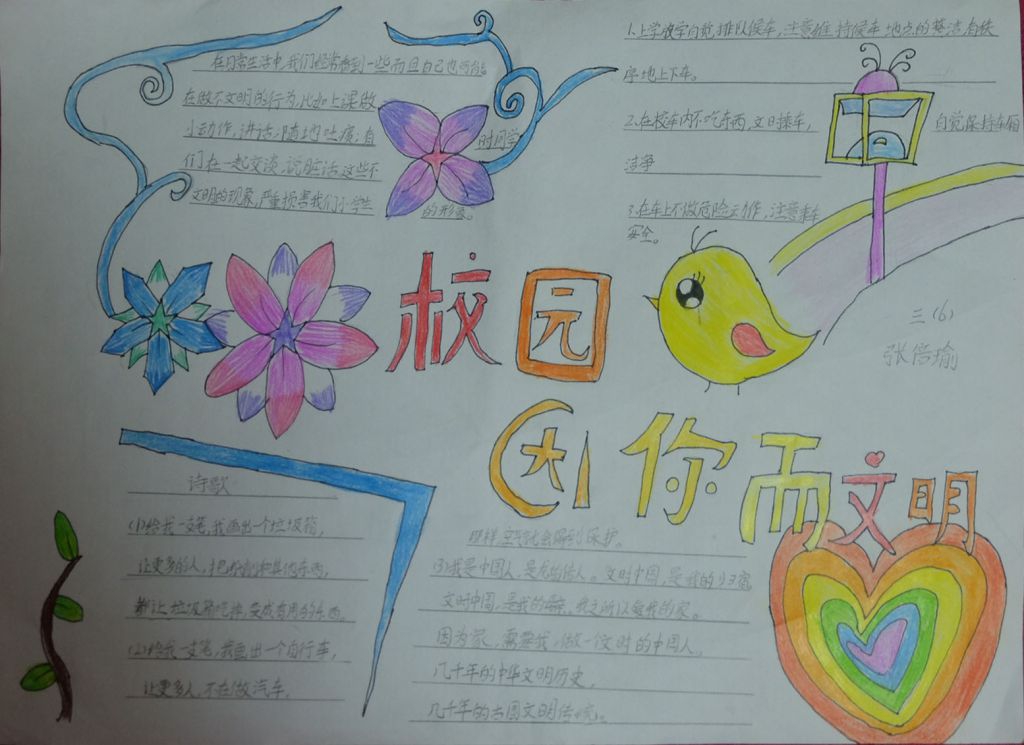 在日常生活中,我们经常看到一些而且自己也可能
在做不文明的行为,比如上课做
小动作,讲话,随地吐痰,有时同学
们在一起交谈,说脏话,这些不
文明的现象,严重损害我们小学生的形象。
1.上学放学自觉排队候车,注意维持候车地点的整洁有秩
序地上下车。
2.在校车内不吃东西,文明乘车,自觉保持车厢
洁净
3.在车上不做危险动作,注意乘车
安全。
校园
因你而文明
三(6)
张倍瑜
诗歌
(1)给我一支笔,我画出一个垃圾箱,
让更多的人,把
都让垃圾箱吃掉,变成有用的东西。
(2)给我一支笔,我画出一个自行车,
让更多人,不在做汽车,
那样空气就会得到保护。
(3)我是中国人,是龙的传人。文明中国,是我的归宿
文明中国,是我的 我之所以爱我的家。
因为家,需要我,做一位文明的中国人。
几千年的中华文明历史,
几千年的古国文明传统。